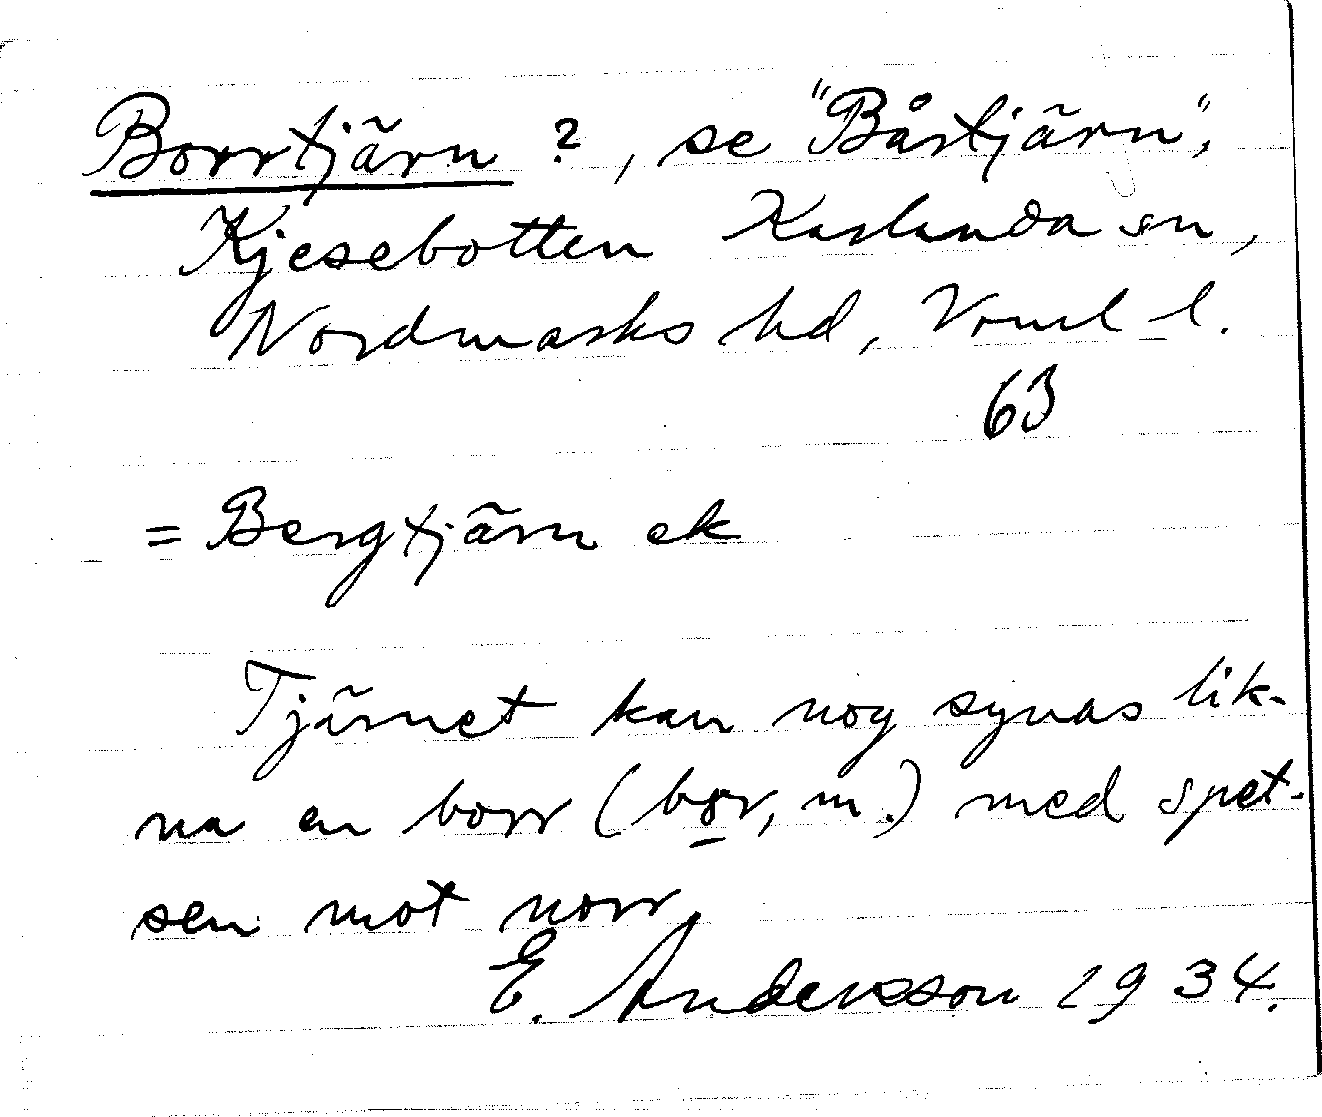 Borrtjärn ?, se "Bårtjärn",
Kjesebotten Karlanda sn,
Nordmarks hd, Vrml l.
63
= Bergtjärn ek
Tjärnet kan nog synas lik-
na en borr (bo̱r, m.) med spet-
sen mot norr.
E. Andersson 1934.